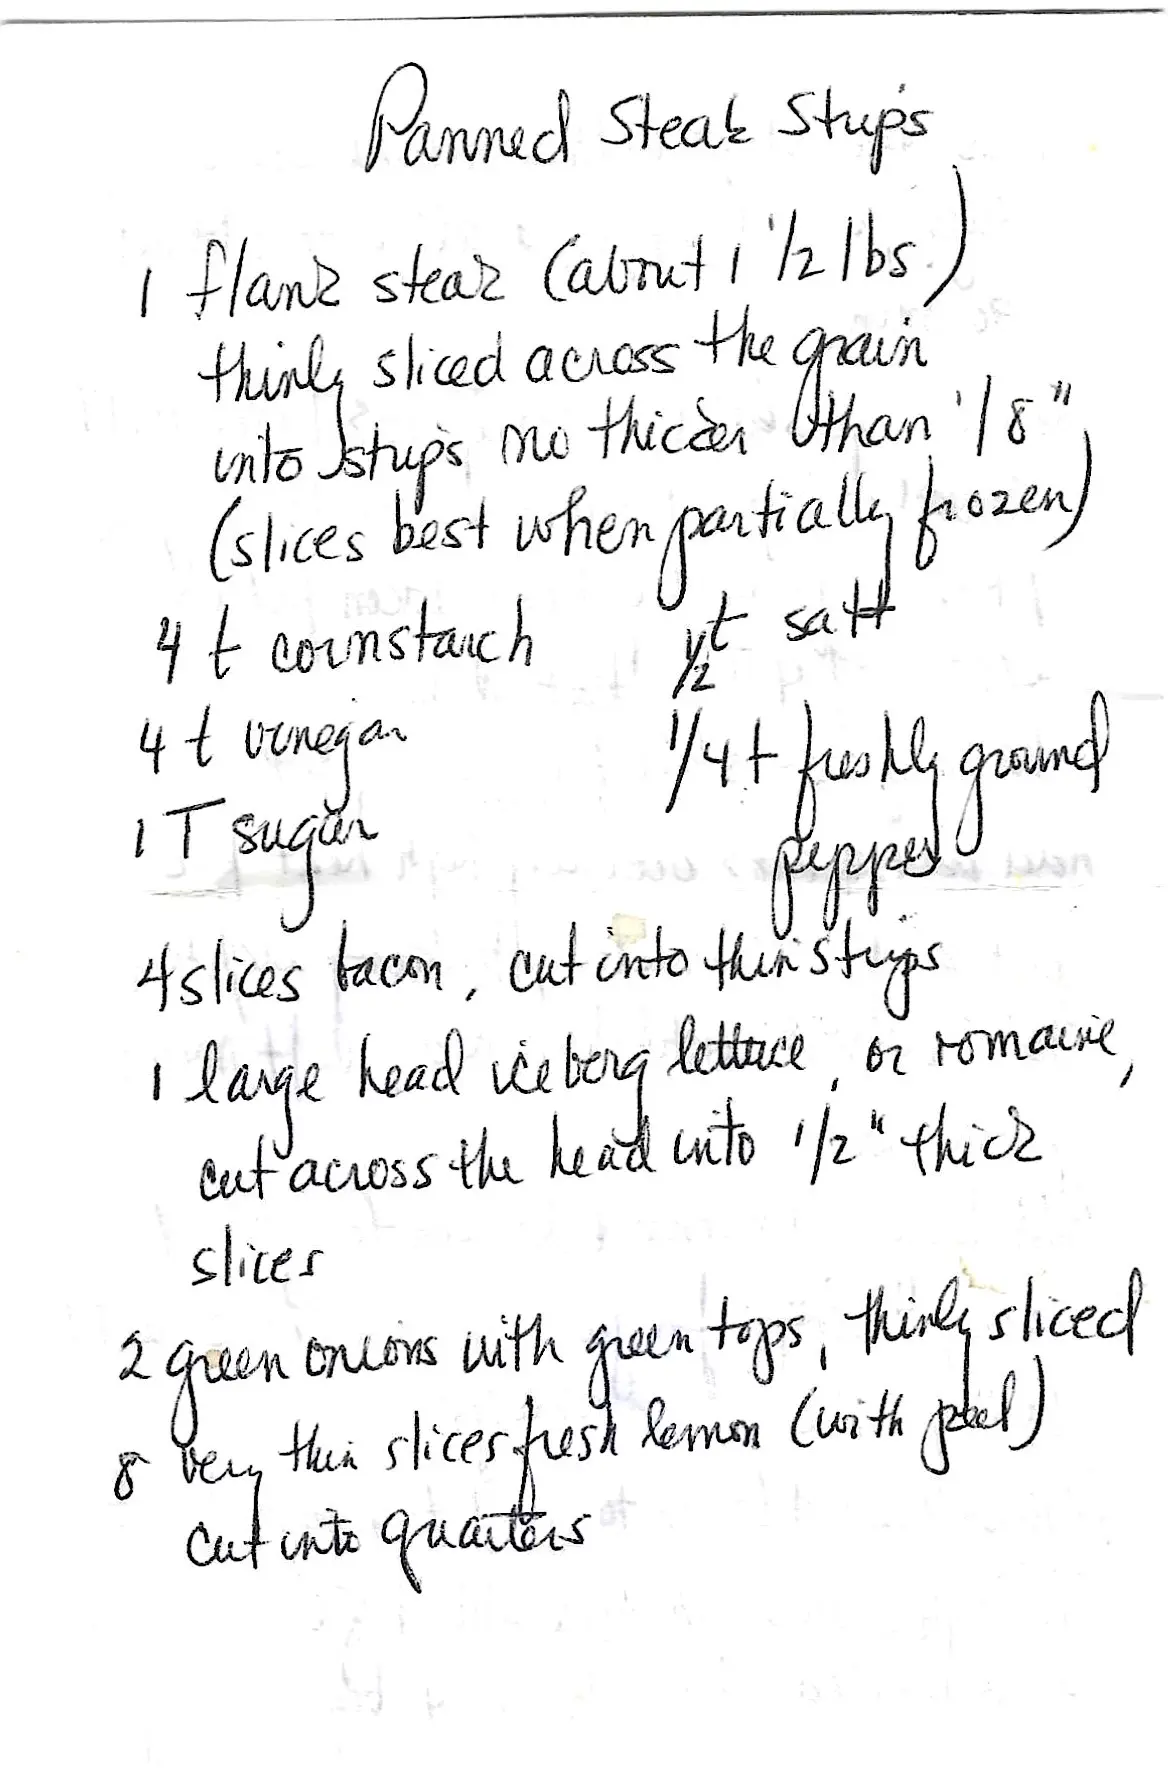 Panned Steak Strips
1 flank steak (about 1 1/2 lbs.)
thinly sliced across the grain
into strips no thicker than 1/8"
(slices best when partially frozen)
4 t cornstarch
1/2 t salt
4 t vinegar
1/4 t freshly ground
pepper
1 T sugar
4 slices bacon, cut into thin strips
1 large head iceberg lettuce, or romaine,
cut across the head into 1/2" thick
slices
2 green onions with green tops, thinly sliced
8 very thin slices fresh lemon (with peel)
cut into quarters